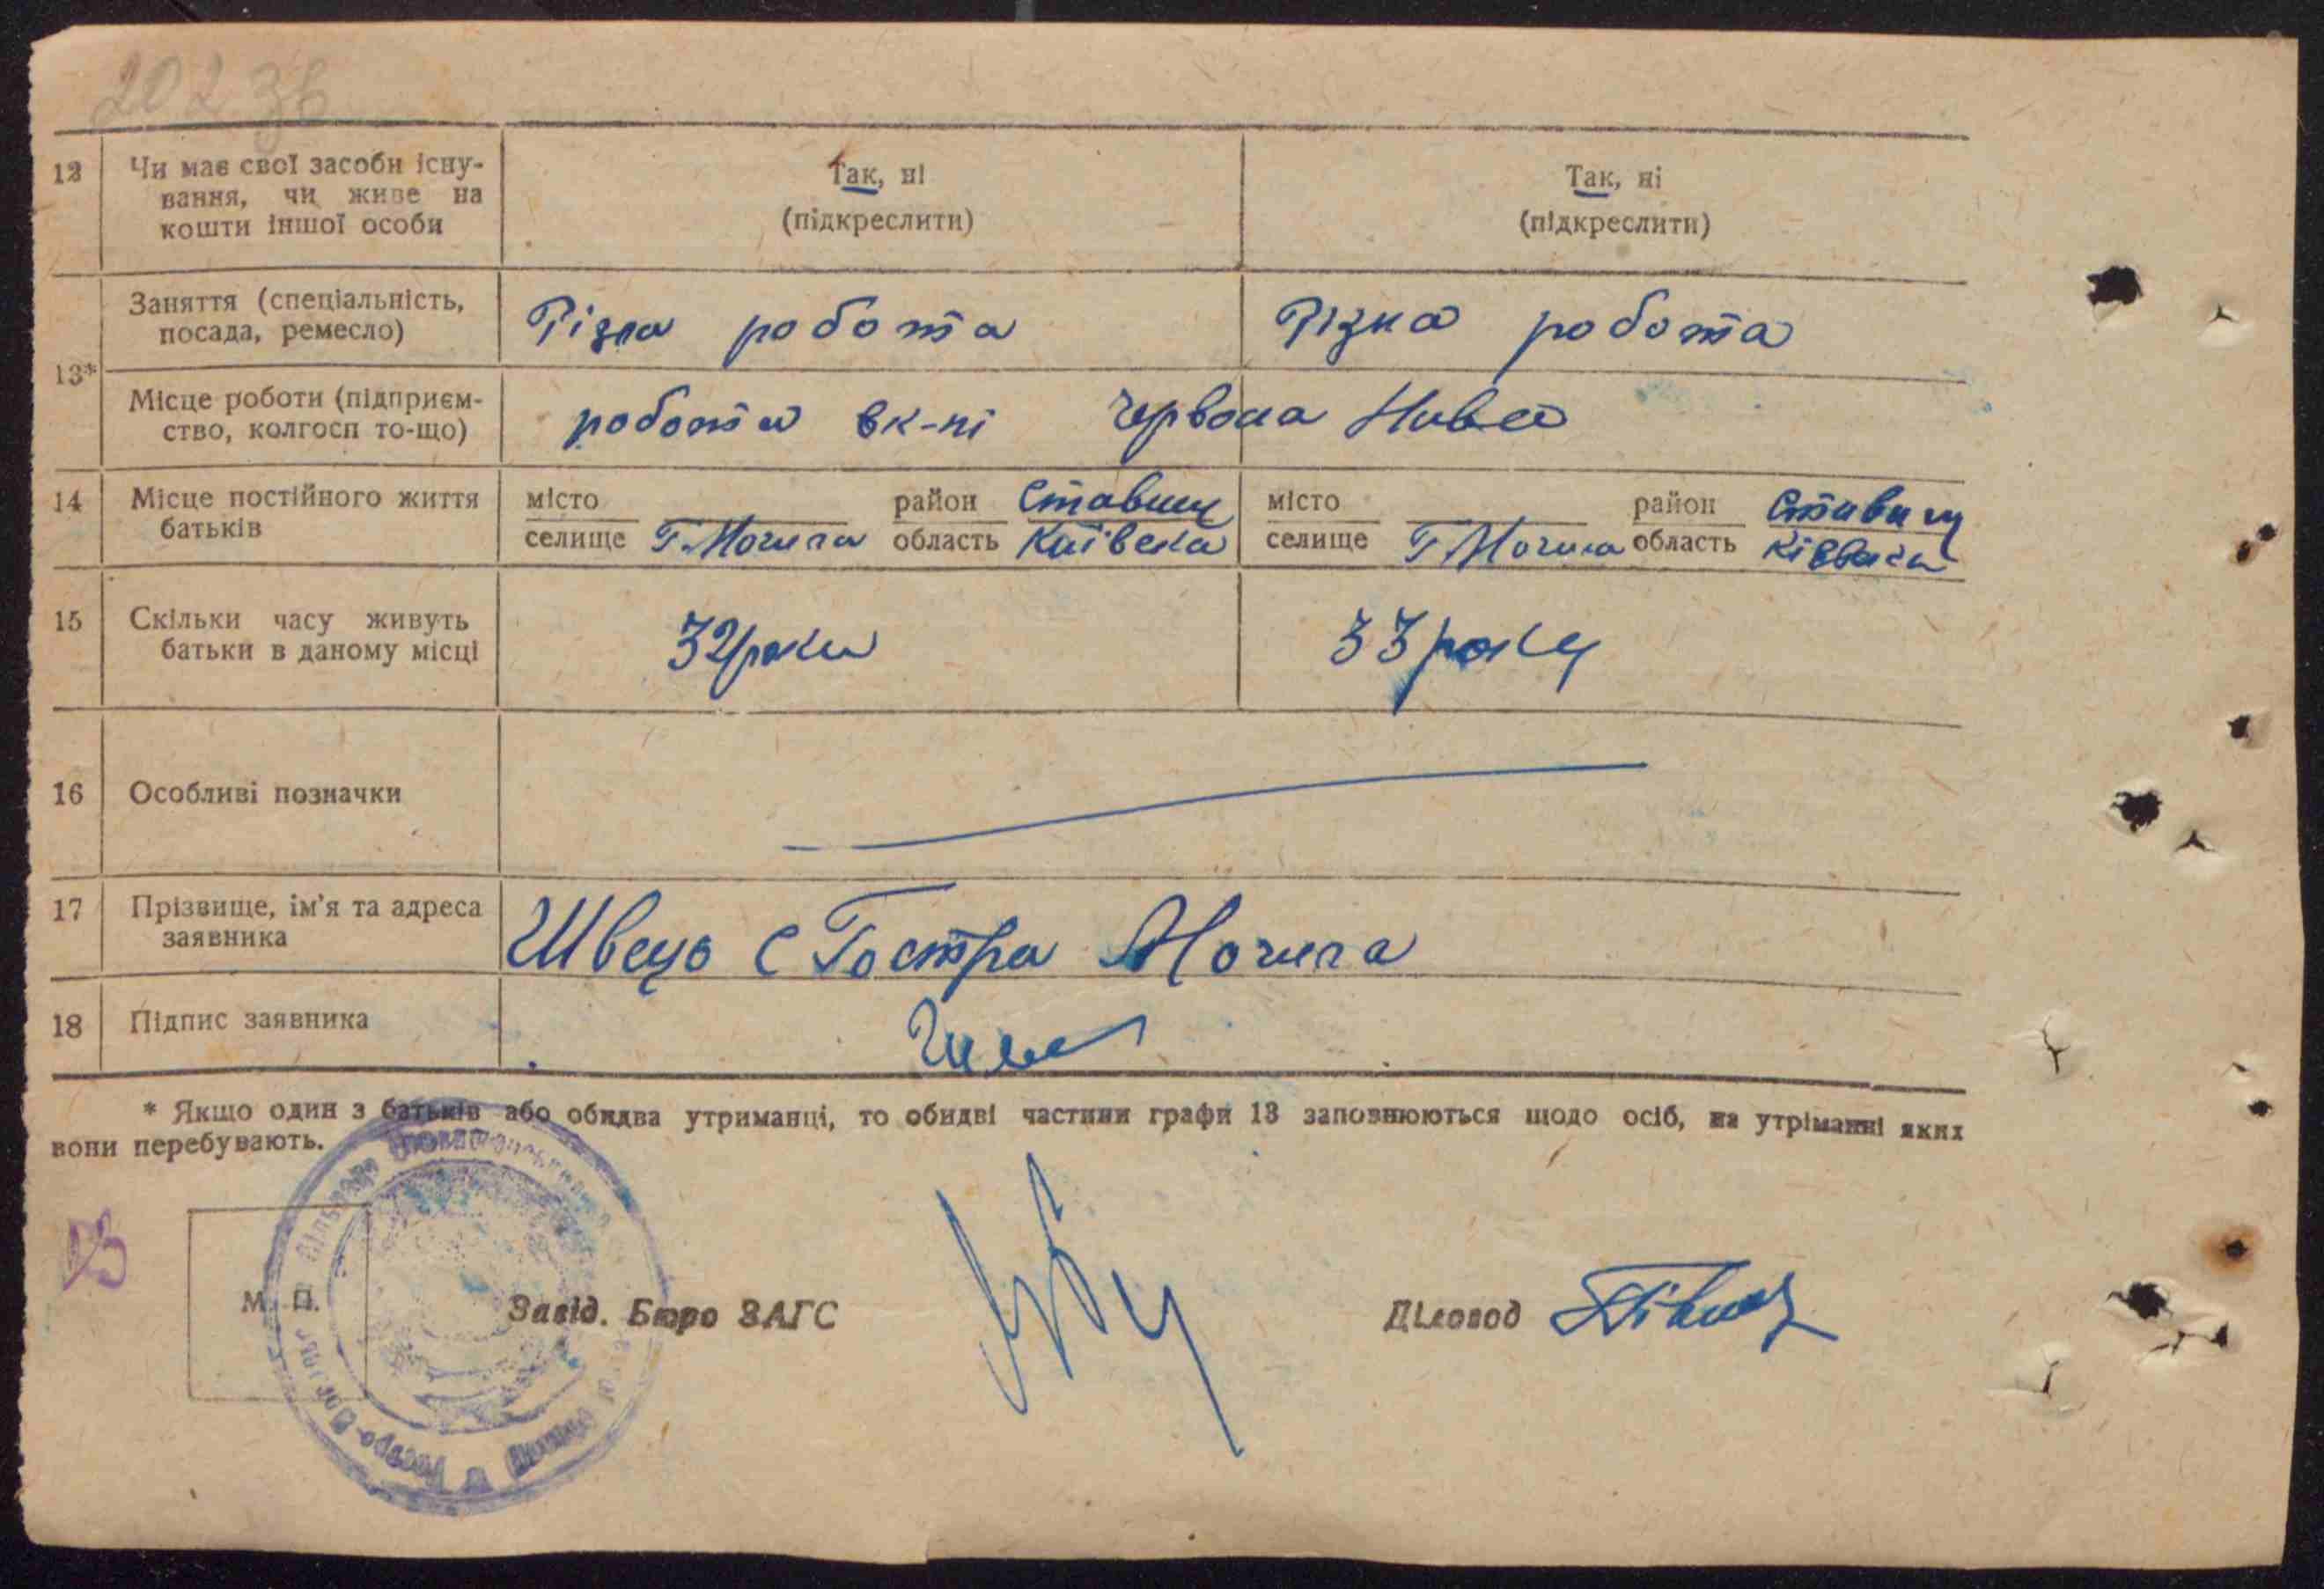 202 зв
12 Чи має свої засоби існу-
вання, чи живе на
кошти іншої особи
Так, ні
(підкреслити)
Так, ні
(підкреслити)
13*
Заняття (спеціальність,
посада, ремесло)
Різна робота
Різна робота
Місце роботи (підприєм-
ство, колгосп то-що)
робота вк-пі Червона Нива
14 Місце постійного життя
батьків
місто
селище Г. Могила
район Ставищ
область Київська
місто
селище Г Могила
район Ставищ
область
15 Скільки часу живуть
батьки в даному місці
32 роки
33 роки
16 Особливі позначки
17 Прізвище, ім'я та адреса
заявника
Швець С Гостра Могила
18 Підпис заявника
* Якщо один з батьків або обидва утриманці, то обидві частини графи 13 заповнюються щодо осіб, на утріманні яких
вони перебувають.
М. П.
Завід. Бюро ЗАГС
Діловод